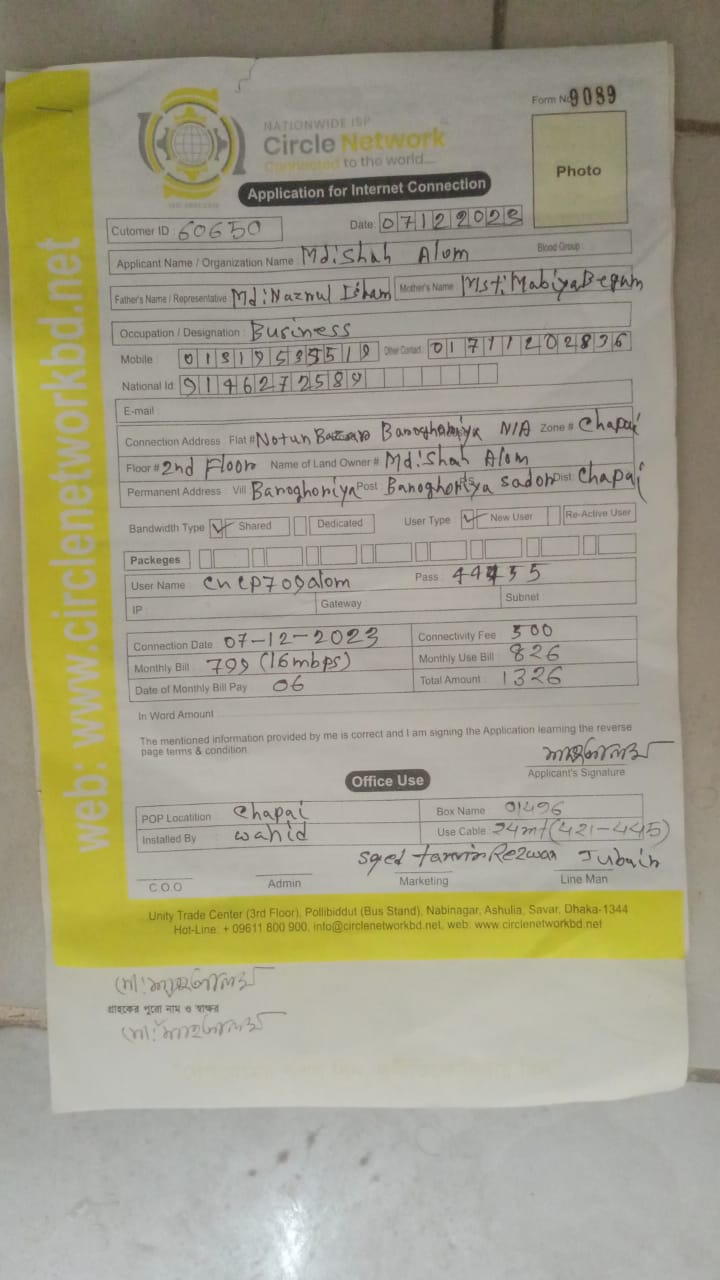 Form No 9089
NATIONWIDE ISP
Circle Network
Connected to the world....
Photo
Application for Internet Connection
Cutomer ID : 60650 Date: 07122023
Applicant Name / Organization Name : Md: Shah Alom Blood Group :
Father's Name / Representative Md: Naznul Isham Mother's Name Mst: Mabiya Begum
Occupation / Designation : Business
Mobile : 01319533519 Other Contact : 01711202896
National Id : 9146272589
E-mail :
Connection Address Flat # Notun Bazar Banoghoniya N/A Zone # Chapai
Floor # 2nd Floor Name of Land Owner # Md: Shah Alom
Permanent Address Vill: Banoghoniya Post: Banoghoniya Sador Dist: Chapai
Bandwidth Type Shared Dedicated User Type New User Re-Active User
Packeges
User Name cncp709alom Pass : 44455
IP : Gateway Subnet
Connection Date 07-12-2023 Connectivity Fee 500
Monthly Bill 799 (16mbps) Monthly Use Bill : 826
Date of Monthly Bill Pay 06 Total Amount : 1326
In Word Amount
The mentioned information provided by me is correct and I am signing the Application learning the reverse
page terms & condition.
Applicant's Signature
Office Use
POP Locatition chapai Box Name 01496
Installed By wahid Use Cable : 24mt (421-445)
Syed tanvir Rezwan Jubair
C.O.O Admin Marketing Line Man
Unity Trade Center (3rd Floor), Pollibiddut (Bus Stand), Nabinagar, Ashulia, Savar, Dhaka-1344
Hot-Line: + 09611 800 900, info@circlenetworkbd.net, web: www.circlenetworkbd.net
web: www.circlenetworkbd.net
গ্রাহকের পুরো নাম ও স্বাক্ষর